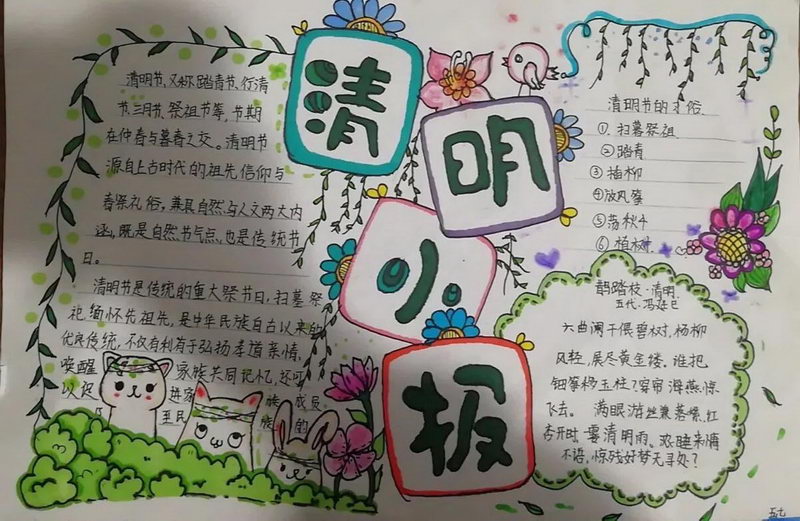 清明小报
清明节，又称踏青节、行清
节、三月节、祭祖节等，节期
在仲春与暮春之交。清明节
源自上古时代的祖先信仰与
春祭礼俗，兼具自然与人文两大内
涵，既是自然节气点，也是传统节
日。
清明节是传统的重大祭节日，扫墓祭
祀、缅怀先祖先，是中华民族自古以来的
优良传统，不仅有利于弘扬孝道亲情、
唤醒家族共同记忆，还可
以促进家族成员
乃至民族的
清明节的习俗
①、扫墓祭祖
②踏青
③插柳
④放风筝
⑤荡秋千
⑥植树
鹊踏枝·清明
五代·冯延巳
六曲阑干偎碧树，杨柳
风轻，展尽黄金缕。谁把
钿筝移玉柱？穿帘海燕惊
飞去。满眼游丝兼落絮，红
杏开时，一霎清明雨。浓睡来
不语，惊残好梦无寻处？
五七